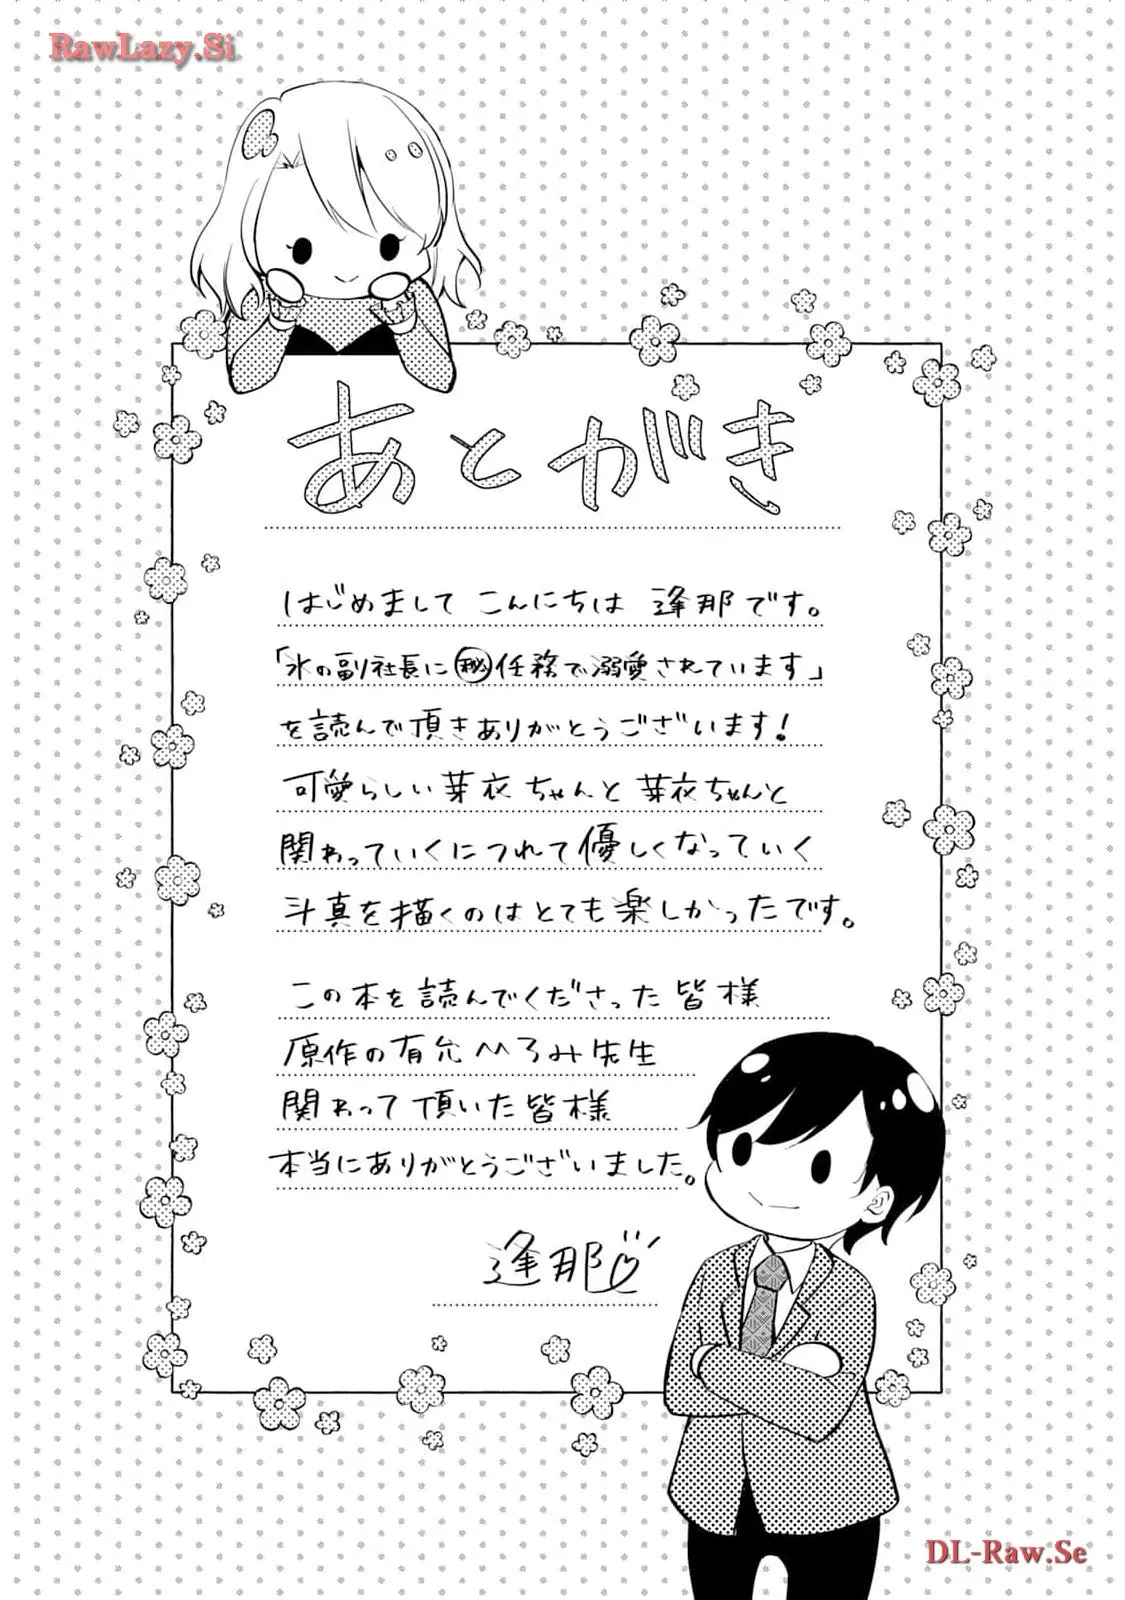 RawLazy.Si
あとがき
はじめまして こんにちは 逢那です。
「氷の副社長に㊙任務で溺愛されています」
を読んで頂きありがとうございます！
可愛らしい芽衣ちゃんと芽衣ちゃんと
関わっていくにつれて優しくなっていく
斗真を描くのはとても楽しかったです。
この本を読んでくださった皆様
原作の有允ひろみ先生
関わって頂いた皆様
本当にありがとうございました。
逢那♡
DL-Raw.Se